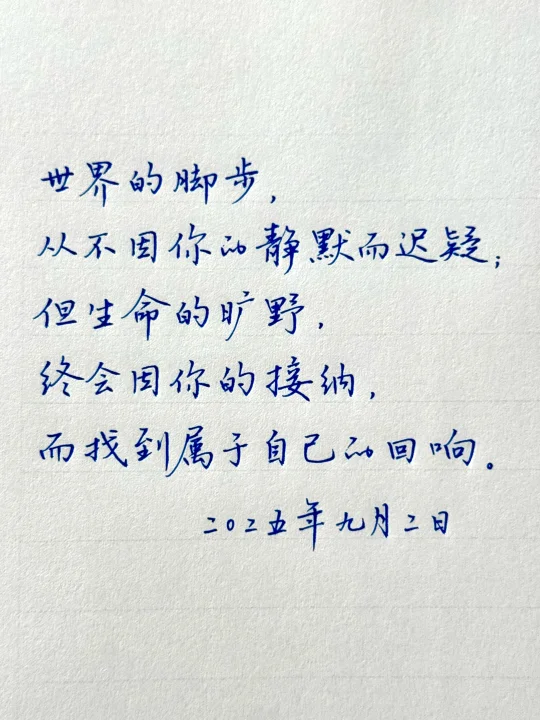 世界的脚步,
从不因你的静默而迟疑;
但生命的旷野,
终会因你的接纳,
而找到属于自己的回响。
二〇二五年九月二日